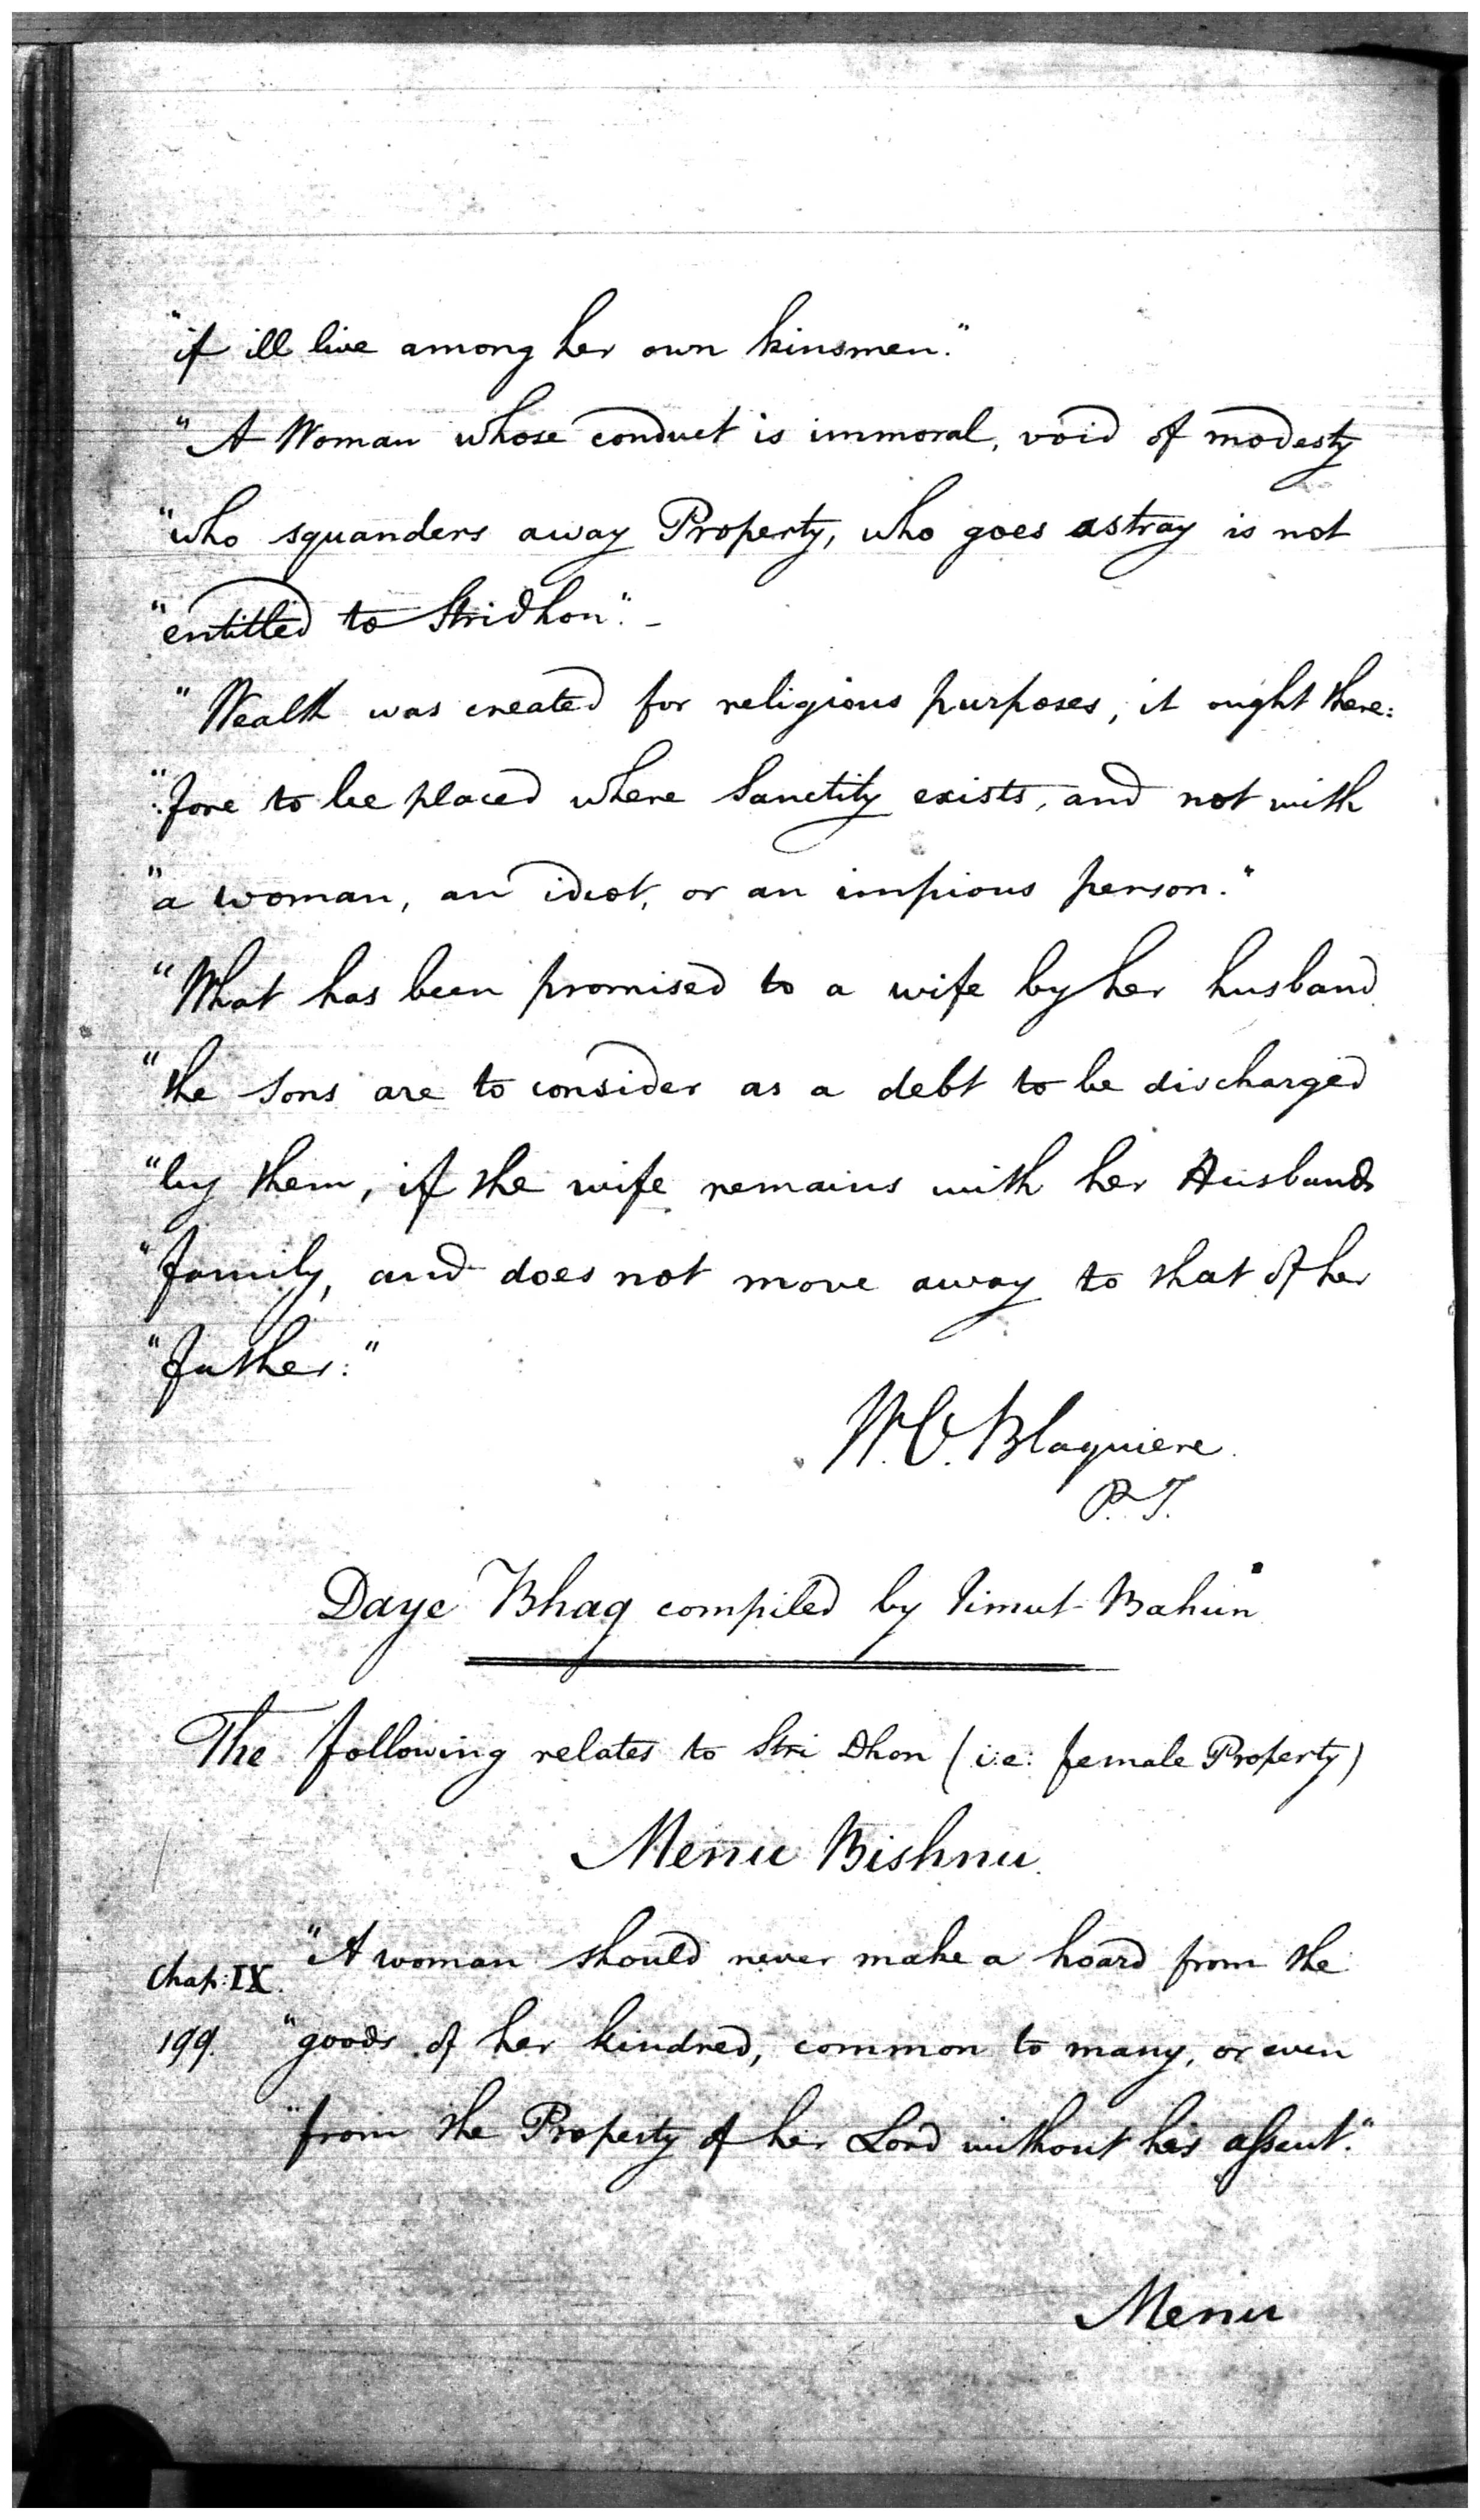 "if ill live among her own kinsmen."
"A Woman whose conduct is immoral, void of modesty
"who squanders away Property, who goes astray is not
"entitled to Stridhon". -
"Wealth was created for religious purposes, it ought there:
":fore to be placed where Sanctity exists, and not with
"a woman, an ideot, or an impious person."
"What has been promised to a wife by her husband
"the sons are to consider as a debt to be discharged
"by them, if the wife remains with her Husbands
"family, and does not move away to that of her
"father:"
W. C. Blaquiere.
P. T.
Daye Bhag compiled by Jimut Bahun
The following relates to Stri Dhon (i:e: female Property)
Menu Bishnu.
Chap: IX. "A woman should never make a hoard from the
199. "goods of her kindred, common to many, or even
"from the Property of her Lord without his assent."
Menu